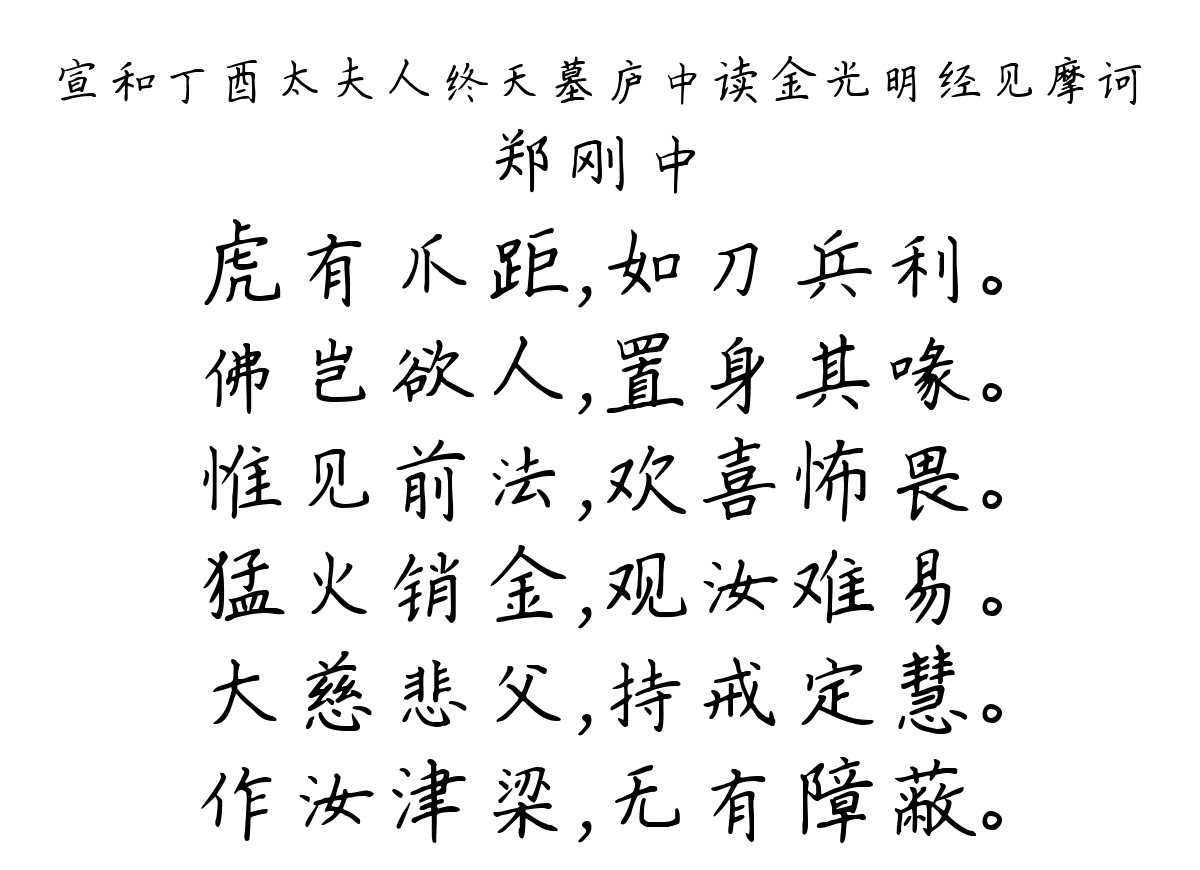 宣和丁酉太夫人终天墓庐中读金光明经见摩诃
郑刚中
虎有爪距,如刀兵利。
佛岂欲人,置身其喙。
惟见前法,欢喜怖畏。
猛火销金,观汝难易。
大慈悲父,持戒定慧。
作汝津梁,无有障蔽。